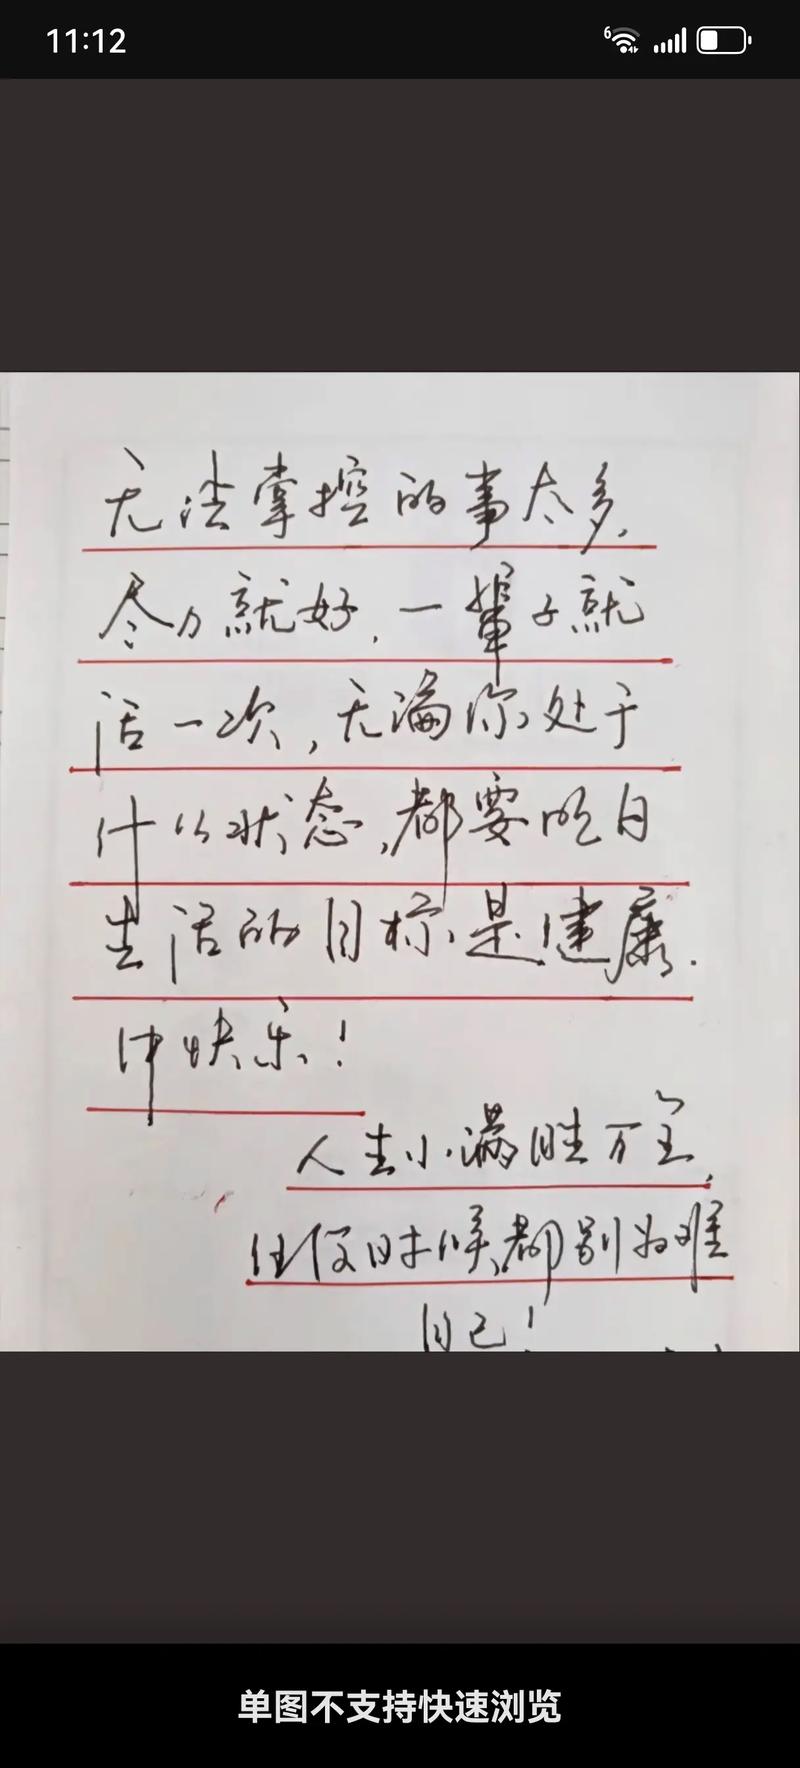 11:12
6
无法掌控的事太多,
尽力就好,一辈子就
活一次,无论你处于
什么状态,都要明白
生活的目标是健康.
快乐!
人生小满胜万全,
任何时候都别为难
自己!
单图不支持快速浏览